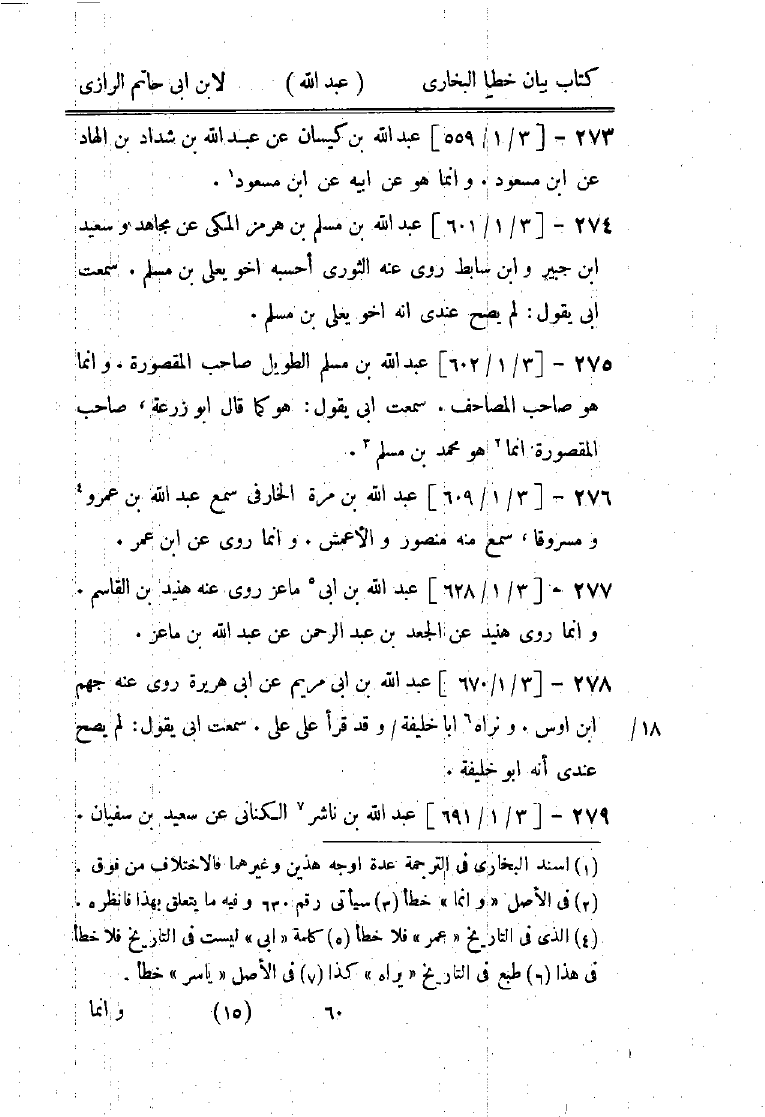 كتاب بيان خطإ البخارى ( عبد الله ) لابن ابى حاتم الرازى
٢٧٣ – [ ٣ / ١ / ٥٥٩ ] عبد الله بن كيسان عن عبد الله بن شداد بن الهاد
عن ابن مسعود . و انما هو عن ابيه عن ابن مسعود١ .
٢٧٤ – [ ٣ / ١ / ٦٠١ ] عبد الله بن مسلم بن هرمز المكى عن مجاهد و سعيد
ابن جبير و ابن سابط روى عنه الثورى أحسبه اخو يعلى بن مسلم . سمعت
ابى يقول : لم يصح عندى انه اخو يعلى بن مسلم .
٢٧٥ – [٣ / ١ / ٦٠٢] عبد الله بن مسلم الطويل صاحب المقصورة . و انما
هو صاحب المصاحف . سمعت ابى يقول : هو كما قال ابو زرعة ، صاحب
المقصورة انما٢ هو محمد بن مسلم٣ .
٢٧٦ – [ ٣ / ١ / ٦٠٩ ] عبد الله بن مرة الخارفى سمع عبد الله بن عمرو٤
و مسروقا ، سمع منه منصور و الأعمش . و انما روى عن ابن عمر .
٢٧٧ – [ ٣ / ١ / ٦٢٨ ] عبد الله بن ابى٥ ماعز روى عنه هنيد بن القاسم .
و انما روى هنيد عن الجعد بن عبد الرحمن عن عبد الله بن ماعز .
٢٧٨ – [٣ / ١ / ٦٧٠ ] عبد الله بن ابى مريم عن ابى هريرة روى عنه جهم
ابن اوس . و نراه٦ ابا خليفة / و قد قرأ على على . سمعت ابى يقول : لم يصح ١٨/
عندى أنه ابو خليفة .
٢٧٩ – [ ٣ / ١ / ٦٩١ ] عبد الله بن ناشر٧ الكنانى عن سعيد بن سفيان .
(١) اسند البخارى فى الترجمة عدة اوجه هذين وغيرهما فالاختلاف من فوق .
(٢) فى الأصل « و انما » خطأ (٣) سيأتى رقم ٦٣٠ و فيه ما يتعلق بهذا فانظره .
(٤) الذى فى التاريخ « عمر » فلا خطأ (٥) كلمة « ابى » ليست فى التاريخ فلا خطأ
فى هذا (٦) طبع فى التاريخ « يراه » كذا (٧) فى الأصل « ياسر » خطأ .
٦٠ (١٥) و انما